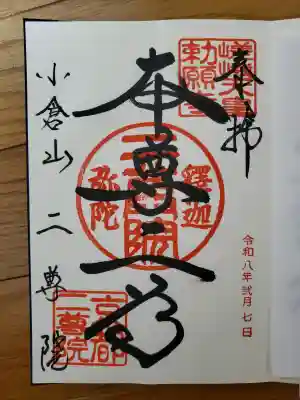 奉拝
令和八年弐月七日
本尊二尊
小倉山二尊院
嵯峨天皇
勅願寺
釋迦
二尊院
弥陀
京都
二尊院